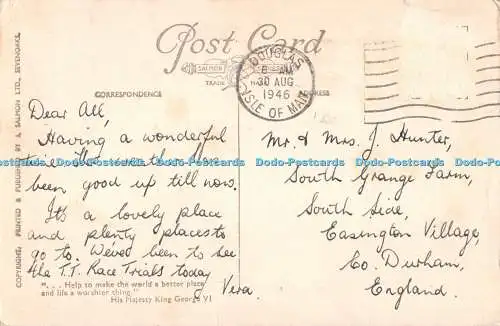 Post Card
SALMON
TRADE
CORRESPONDENCE
DOUGLAS
6 AM
30 AUG.
1946
ISLE OF MAN
Dear All,
Having a wonderful
time the weather
been good up till now.
It's a lovely place
and plenty places to
go to. We've been to see
the T.T. Race Trials today
Vera.
". . . Help to make the world a better place
and life a worthier thing."
His Majesty King George VI
Mr. & Mrs. J. Hunter,
South Grange Farm,
South Side,
Easington Village,
Co. Durham,
England.
COPYRIGHT, PRINTED & PUBLISHED BY J. SALMON LTD., SEVENOAKS.
Dodo-Postcards Dodo-Postcards Dodo-Postcards Dodo-Postcards Dodo-Postcards